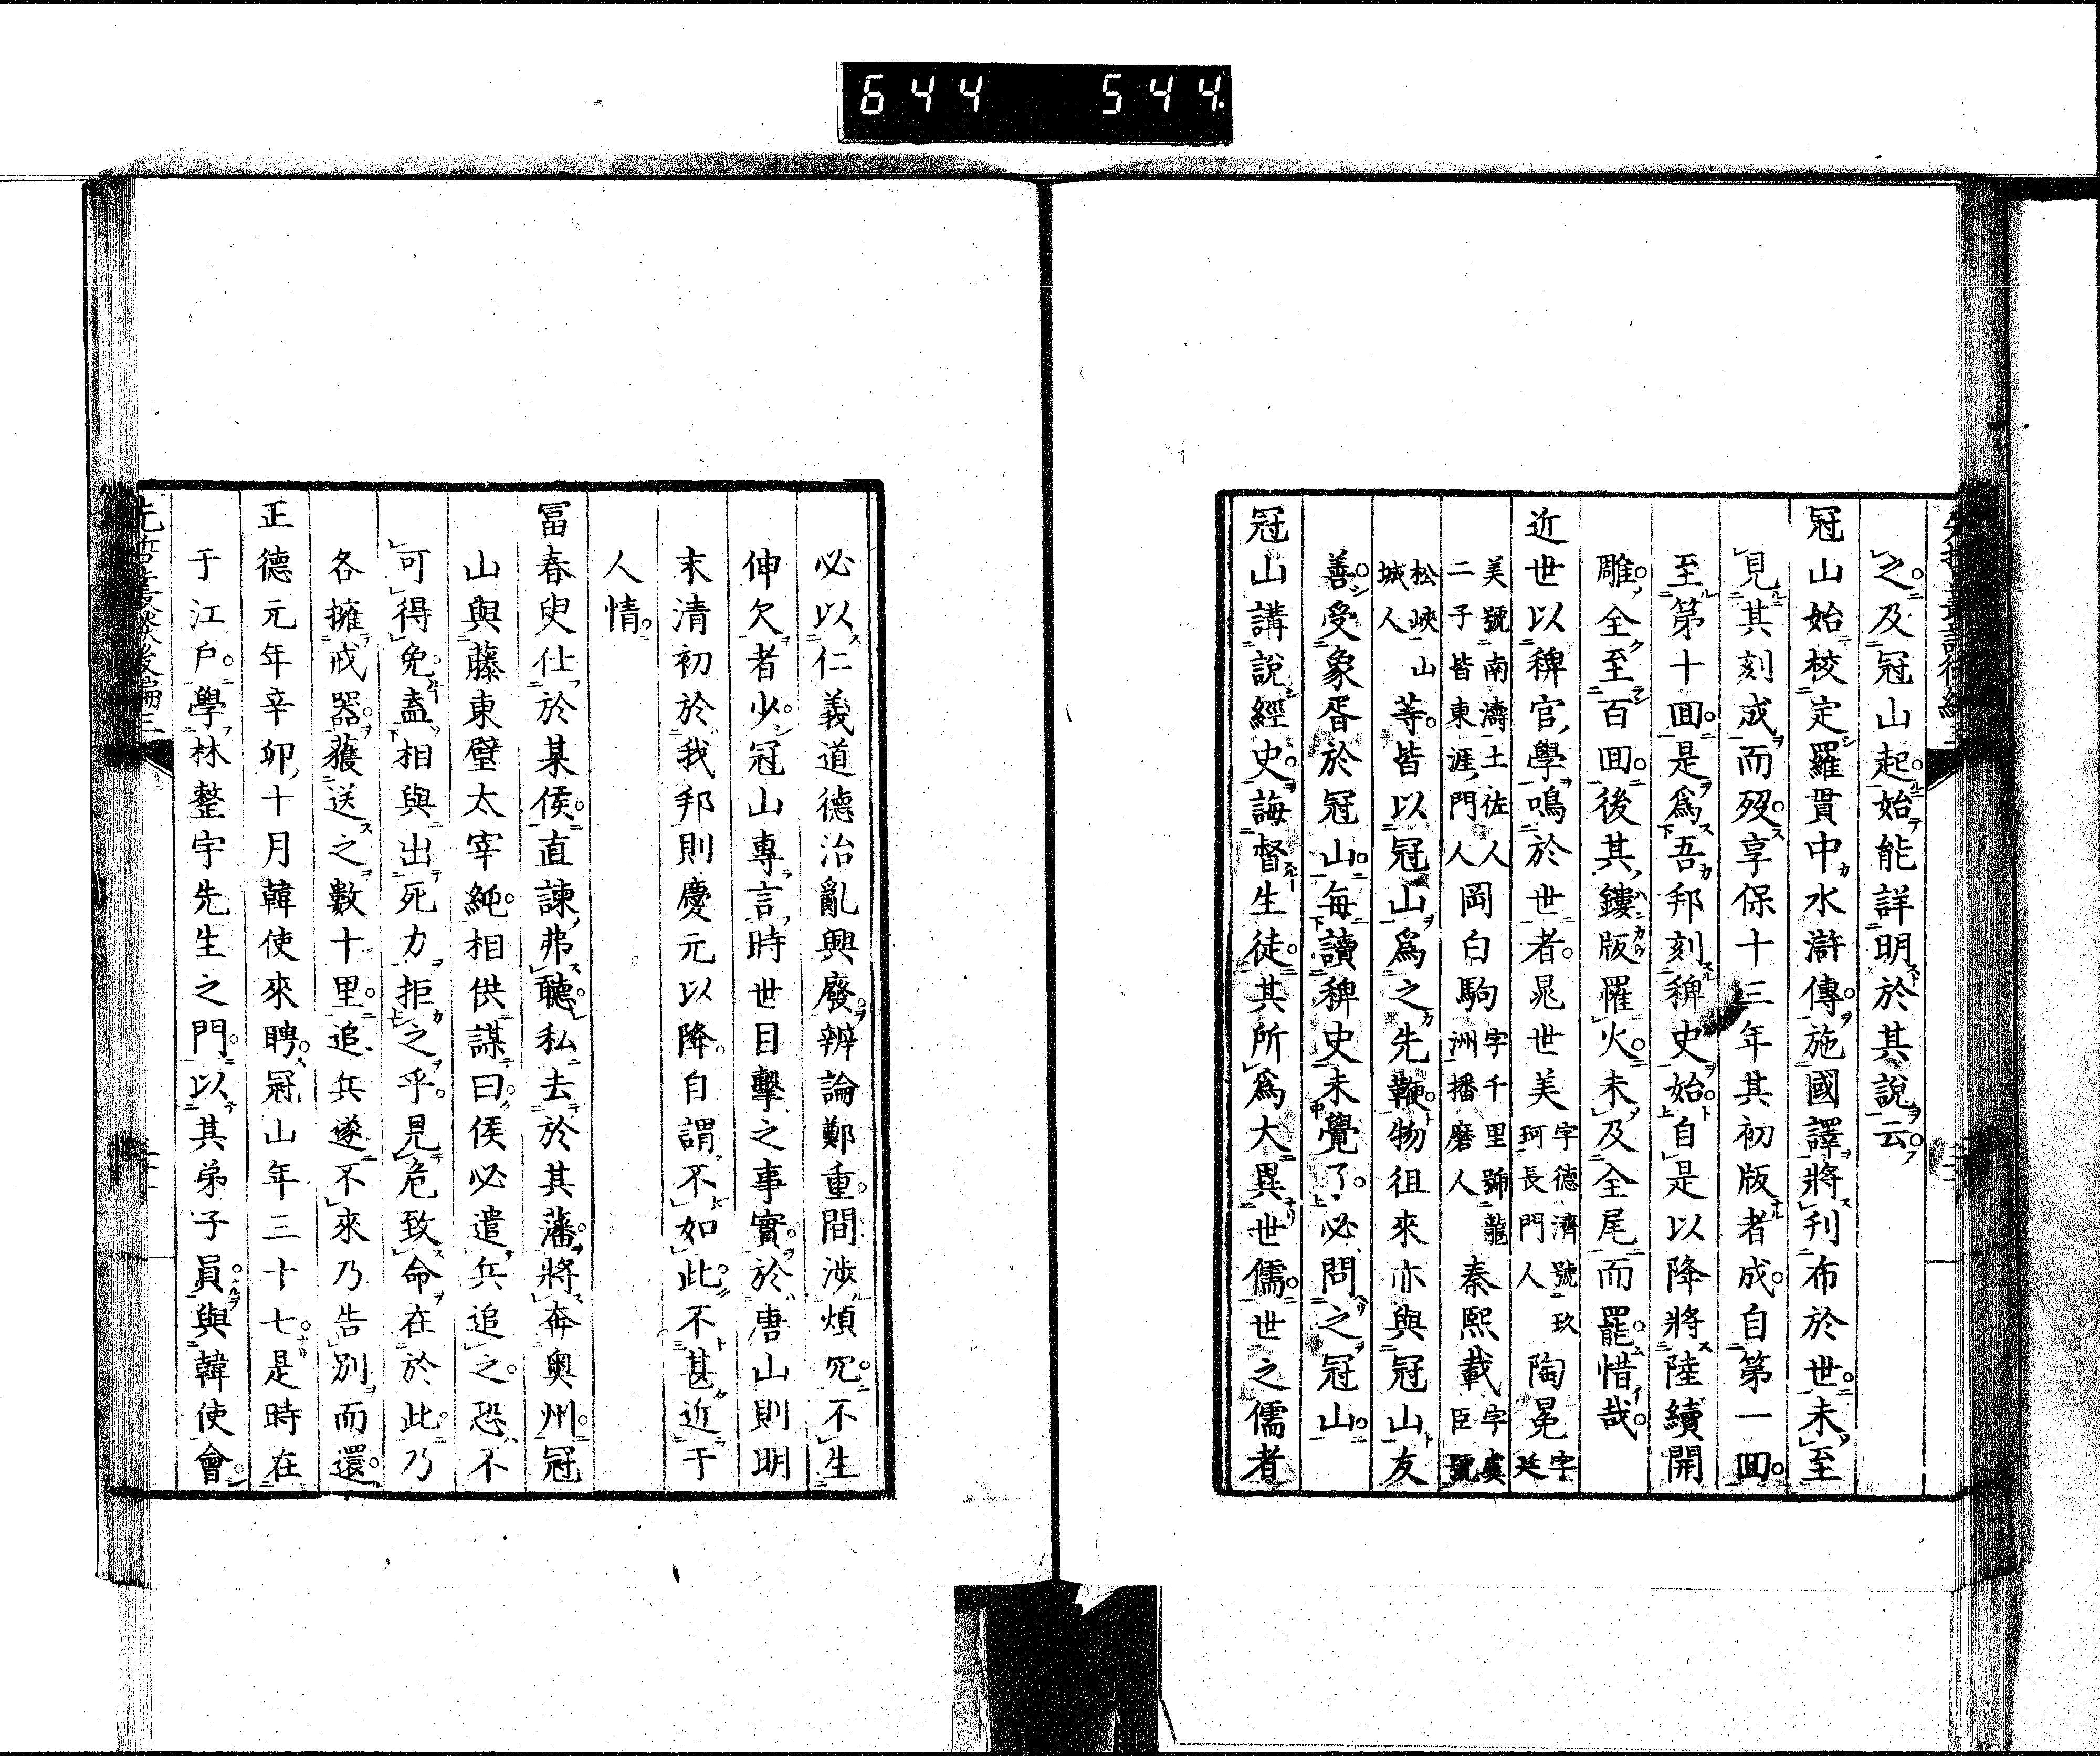 644 544
之及冠山起始能詳明於其說云
冠山始校定羅貫中水滸傳施國譯將刊布於世未至
見其刻成而歿享保十三年其初版者成自第一回
至第十回是爲吾邦刻稗史始自是以降將陸續開
雕全至百回後其鏤版罹火未及全尾而罷惜哉
近世以稗官學鳴於世者晁世美字德濟號玖珂長門人陶冕字廷
美號南濤土佐人二子皆東涯門人岡白駒字千里號龍洲播磨人秦熙載字虞臣號
松峽山城人等皆以冠山爲之先鞭物徂來亦與冠山友
善受象胥於冠山每讀稗史未覺了必問之冠山
冠山講說經史誨督生徒其所爲大異世儒世之儒者
必以仁義道德治亂興廢辨論鄭重間涉煩冗不生
伸欠者少冠山專言時世目擊之事實於唐山則明
末清初於我邦則慶元以降自謂不如此不甚近于
人情
冨春叟仕於某侯直諫弗聽私去於其藩將奔奧州冠
山與藤東壁太宰純相供謀曰侯必遣兵追之恐不
可得免盍相與出死力拒之乎見危致命在於此乃
各擁戒器護送之數十里追兵遂不來乃告別而還
正德元年辛卯十月韓使來聘冠山年三十七是時在
于江戶學林整宇先生之門以其弟子員與韓使會
先哲叢談後編三